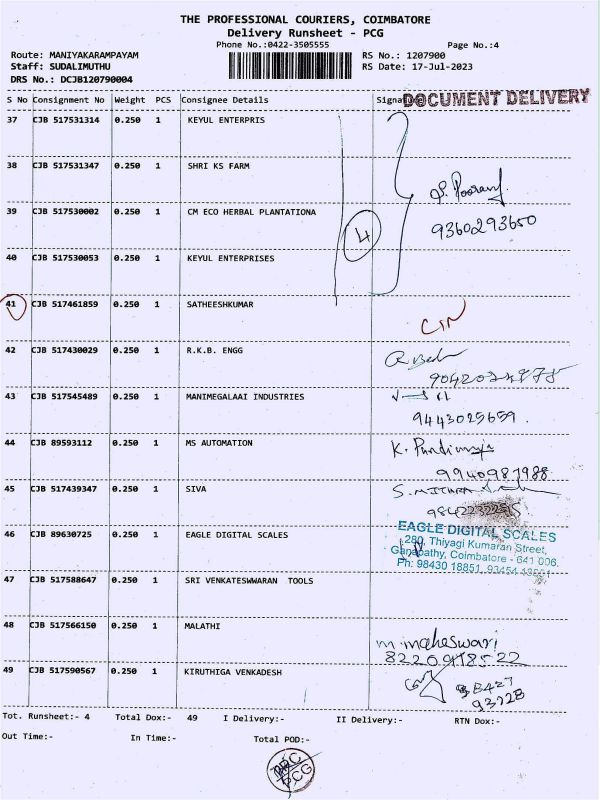 THE PROFESSIONAL COURIERS, COIMBATORE
Delivery Runsheet - PCG
Phone No.:0422-3505555 Page No.:4
Route: MANIYAKARAMPAYAM RS No.: 1207900
Staff: SUDALIMUTHU RS Date: 17-Jul-2023
DRS No.: DCJB120790004
S No Consignment No Weight PCS Consignee Details DOCUMENT DELIVERY
37 CJB 517531314 0.250 1 KEYUL ENTERPRIS
38 CJB 517531347 0.250 1 SHRI KS FARM
39 CJB 517530002 0.250 1 CM ECO HERBAL PLANTATIONA 4 9360293650
40 CJB 517530053 0.250 1 KEYUL ENTERPRISES
41 CJB 517461859 0.250 1 SATHEESHKUMAR
42 CJB 517430029 0.250 1 R.K.B. ENGG
43 CJB 517545489 0.250 1 MANIMEGALAAI INDUSTRIES
9443025659
44 CJB 89593112 0.250 1 MS AUTOMATION
9940987988
45 CJB 517439347 0.250 1 SIVA
46 CJB 89630725 0.250 1 EAGLE DIGITAL SCALES
EAGLE DIGITAL SCALES
280, Thiyagi Kumaran Street,
Ganapathy, Coimbatore - 641 006.
Ph: 98430 18851,
47 CJB 517588647 0.250 1 SRI VENKATESWWARAN TOOLS
48 CJB 517566150 0.250 1 MALATHI
m maheswari
8220918522
49 CJB 517590567 0.250 1 KIRUTHIGA VENKADESH
Tot. Runsheet:- 4 Total Dox:- 49 I Delivery:- II Delivery:- RTN Dox:-
Out Time:- In Time:- Total POD:-
PCG